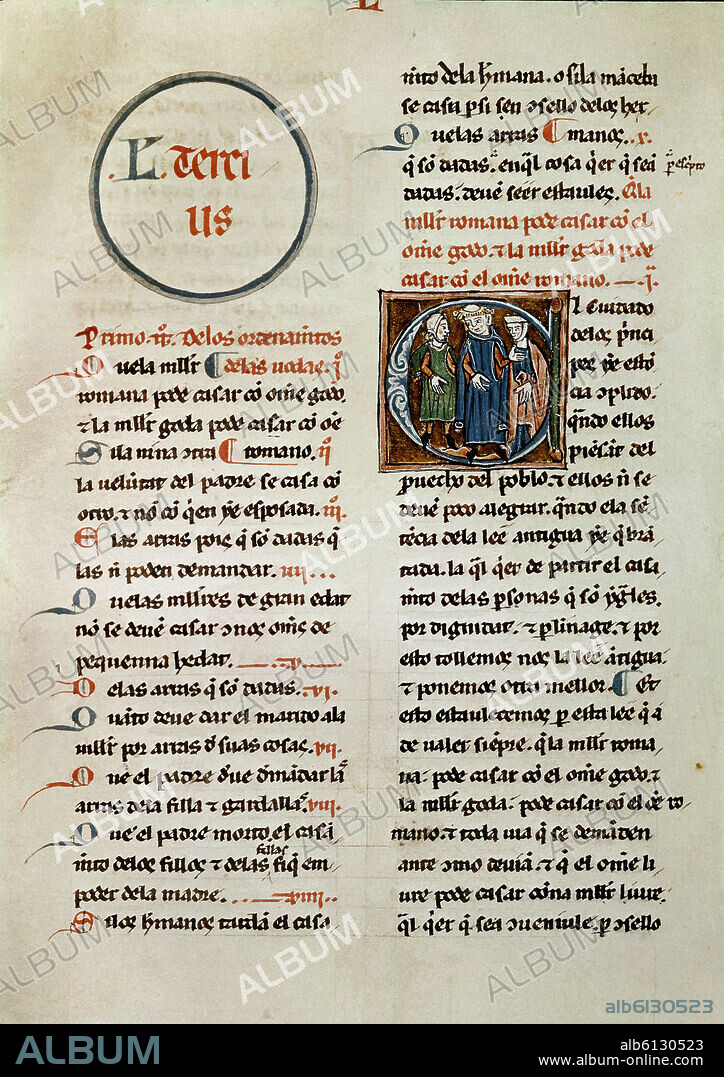 L
.L. terci
us
Primo. tt̃. Delos ordenamĩtos
Que la mill̃r ¶ delas uodas. ĩ
romana pode casar cõ om̃e godo.
⁊ la mill̃r goda pode casar cõ om̃e
Si la nina ¶ romano. ĩj
la uolũtat del padre se casa cõ
otro. ⁊ nõ cõ q̃en ye esposada. iĩj.
E las arras pois q̃ sõ dadas q̃
las ñ poden demandar. iiij...
Que las mill̃res de gran edat
nõ se deuẽ casar ↄnos om̃s de
pequenna hedat. v.
De las arras q̃ sõ dadas. vi.
Quãto deue dar el marido ala
mill̃r por arras d̃ suas cosas. vij.
Que el padre d̃ue d̃mãdar las
arras dela filla ⁊ gardallas. viij.
Que el padre morto. el casa
mĩto delos fillos ⁊ delas fillas fiq̃ em
poder dela madre. viiij.
Si los h̃manos tardã el casa
mĩto dela h̃mana. o si la mãceba
se casa p̃ si sen ↄsello delos her
Que las arras ¶ manos. x.
q̃ sõ dadas. en q̃l cosa q̃er q̃ seã p̃ esc̃pto
dadas. deuẽ seer estaules. Q̃ la
mill̃r romana pode casar cõ el
om̃e godo. ⁊ la mill̃r goda pode
casar cõ el om̃e romano. ĩ.
l cuidado
delos p̃nci
pes ye estõ
cia ↄplido.
q̃ndo ellos
piẽsar del
prouecho del poblo. ⁊ ellos ñ se
deuẽ poco alegrar. q̃ndo ela sẽ
tẽcia dela lee antigua ye q̃brã
tada. la q̃l q̃er de partir el casa
mĩto delas p̃sonas q̃ sõ yg̃les.
por dignidat. ⁊ p̃ linage. ⁊ por
esto tollemos nos la lee ãtigua.
⁊ ponemos otra mellor. ¶ Et
esto estaulecemos p̃ esta lee q̃ á
de ualer siẽpre. q̃ la mill̃r roma
na: pode casar cõ el om̃e godo. ⁊
la mill̃r goda: pode casar cõ el om̃e ro
mano. ⁊ toda uia q̃ se demãden
ante ↄmo deuiã. ⁊ q̃ el om̃e li
ure pode casar cõna mill̃r liure.
q̃l q̃er q̃ sea ↄueniule. p̃ ↄsello
ALBUM
alb6130523
ALBUM
alb6130523
www.album-online.com